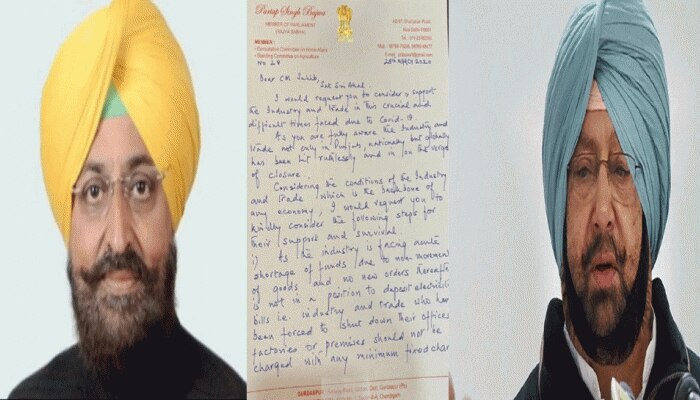 Partap Singh Bajwa
MEMBER OF PARLIAMENT
(RAJYA SABHA)
New Delhi
MEMBER :
- Consultative Committee on Home Affairs
- Standing Committee on Agriculture
No. 28
28th MARCH 2020
Dear CM Sahib,
Sat Sri Akal,
I would request you to consider & support
the Industry and trade in this crucial and
difficult times faced due to Covid-19.
As you are fully aware the Industry and
trade not only in Punjab, nationally but globally
has been hit ruthlessly and is on the verge
of closure.
Considering the conditions of the Industry
and trade which is the backbone of
any economy, I would request you to
kindly consider the following steps for
their support and survival.
1) As the industry is facing acute
shortage of funds due to non-movement
of goods and no new orders thereafter
is not in a position to deposit electricit
bills i.e. industry and trade who have
been forced to shut down their offices
factories or premises should not be
charged with any minimum fixed char
GURDASPUR :
Chandigarh